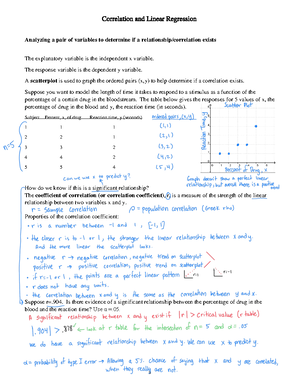 Correlation and Linear Regression
Analyzing a pair of variables to determine if a relationship/correlation exists
The explanatory variable is the independent x variable.
The response variable is the dependent y variable.
A scatterplot is used to graph the ordered pairs (x, y) to help determine if a correlation exists.
Suppose you want to model the length of time it takes to respond to a stimulus as a function of the
percentage of a certain drug in the bloodstream. The table below gives the responses for 5 values of x, the
percentage of drug in the blood and y, the reaction time (in seconds).
Scatter Plot
Subject Percent, x, of drug Reaction time, y (seconds) ordered pairs, (x, y)
1 1 1 (1,1)
2 2 1 (2,1)
n=5 3 3 2 (3,2)
4 4 2 (4,2)
5 5 4 (5,4)
Reaction Time, y
Percent of Drug, x
can we use x to predict y?
Graph doesn't show a perfect linear
relationship, but overall there is a positive
How do we know if this is a significant relationship?
The coefficient of correlation (or correlation coefficient), r, is a measure of the strength of the linear
relationship between two variables x and y.
r = sample correlation ρ = population correlation (Greek rho)
Properties of the correlation coefficient:
• r is a number between -1 and 1, [-1, 1]
• the closer r is to -1 or 1, the stronger the linear relationship between x and y
And the more linear the scatterplot looks.
• negative r → negative correlation, negative trend on scatterplot
positive r → positive correlation, positive trend on scatterplot
• if r = -1 or 1, the points are a perfect linear pattern r=1 r=-1
• r does not have any units.
• the correlation between x and y is the same as the correlation between y and x.
Suppose r=.904. Is there evidence of a significant relationship between the percentage of drug in the
blood and the reaction time? Use α=.05
A significant relationship between x and y exist if |r| > critical value (r table)
|.904| > .878 ← look at r table for the intersection of n = 5 and α = .05
We do have a significant relationship between x and y. We can use x to predict y.
α = probability of type I error → allowing a 5% chance of saying that x and y are correlated,
when they really are not.